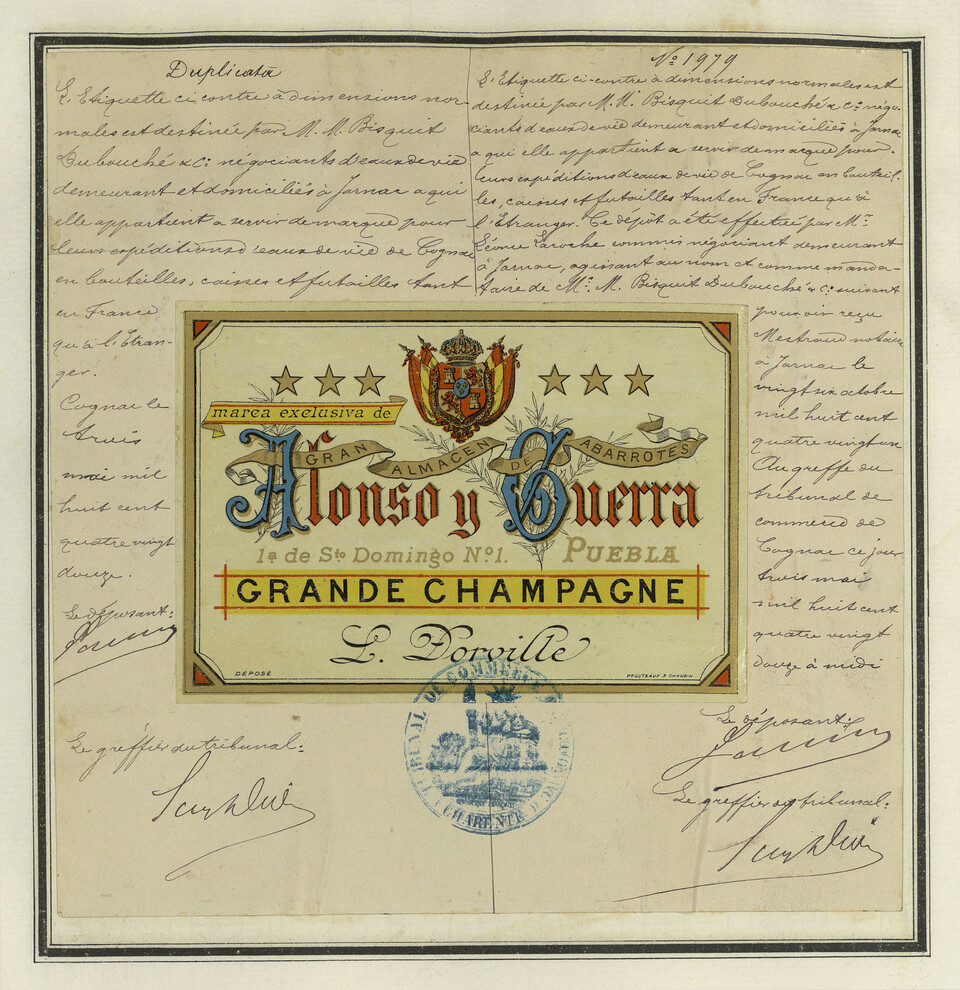 Duplicata
L'Etiquette ci contre à dimensions nor-
males est destinée par M. M. Bisquit
Dubouché & Cie négociants d'eaux de vie
demeurant et domiciliés à Jarnac a qui
elle appartient a servir de marque pour
leurs expéditions d'eaux de vie de Cognac
en bouteilles, caisses et futailles tant
en France
qu'à l'Etran-
ger.
Cognac le
trois
mai mil
huit cent
quatre vingt
douze.
Le déposant:
Le greffier du tribunal:
No 1979
L'Etiquette ci-contre à dimensions normales est
destinée par M. M. Bisquit Dubouché & Cie négo-
ciants d'eaux de vie demeurant et domiciliés à Jarnac
a qui elle appartient a servir de marque pour
leurs expéditions d'eaux de vie de Cognac en bouteil-
les, caisses et futailles tant en France qu'à
l'Etranger. Ce dépôt a été effectué par Mr
Léonce Laroche commis négociant demeurant
à Jarnac, agissant au nom et comme manda-
taire de M. M. Bisquit Dubouché & Cie suivant
pouvoir reçu
Mestraud notaire
à Jarnac le
vingt six octobre
mil huit cent
quatre vingt un
Au greffe du
tribunal de
commerce de
Cognac ce jour
trois mai
mil huit cent
quatre vingt
douze à midi
Le déposant:
Le greffier du tribunal:
marca exclusiva de
GRAN ALMACEN DE ABARROTES
Alonso y Guerra
1a de Sto Domingo No 1. PUEBLA
GRANDE CHAMPAGNE
L. Dorville
DÉPOSÉ
TRIBUNAL DE COMMERCE
(CHARENTE)